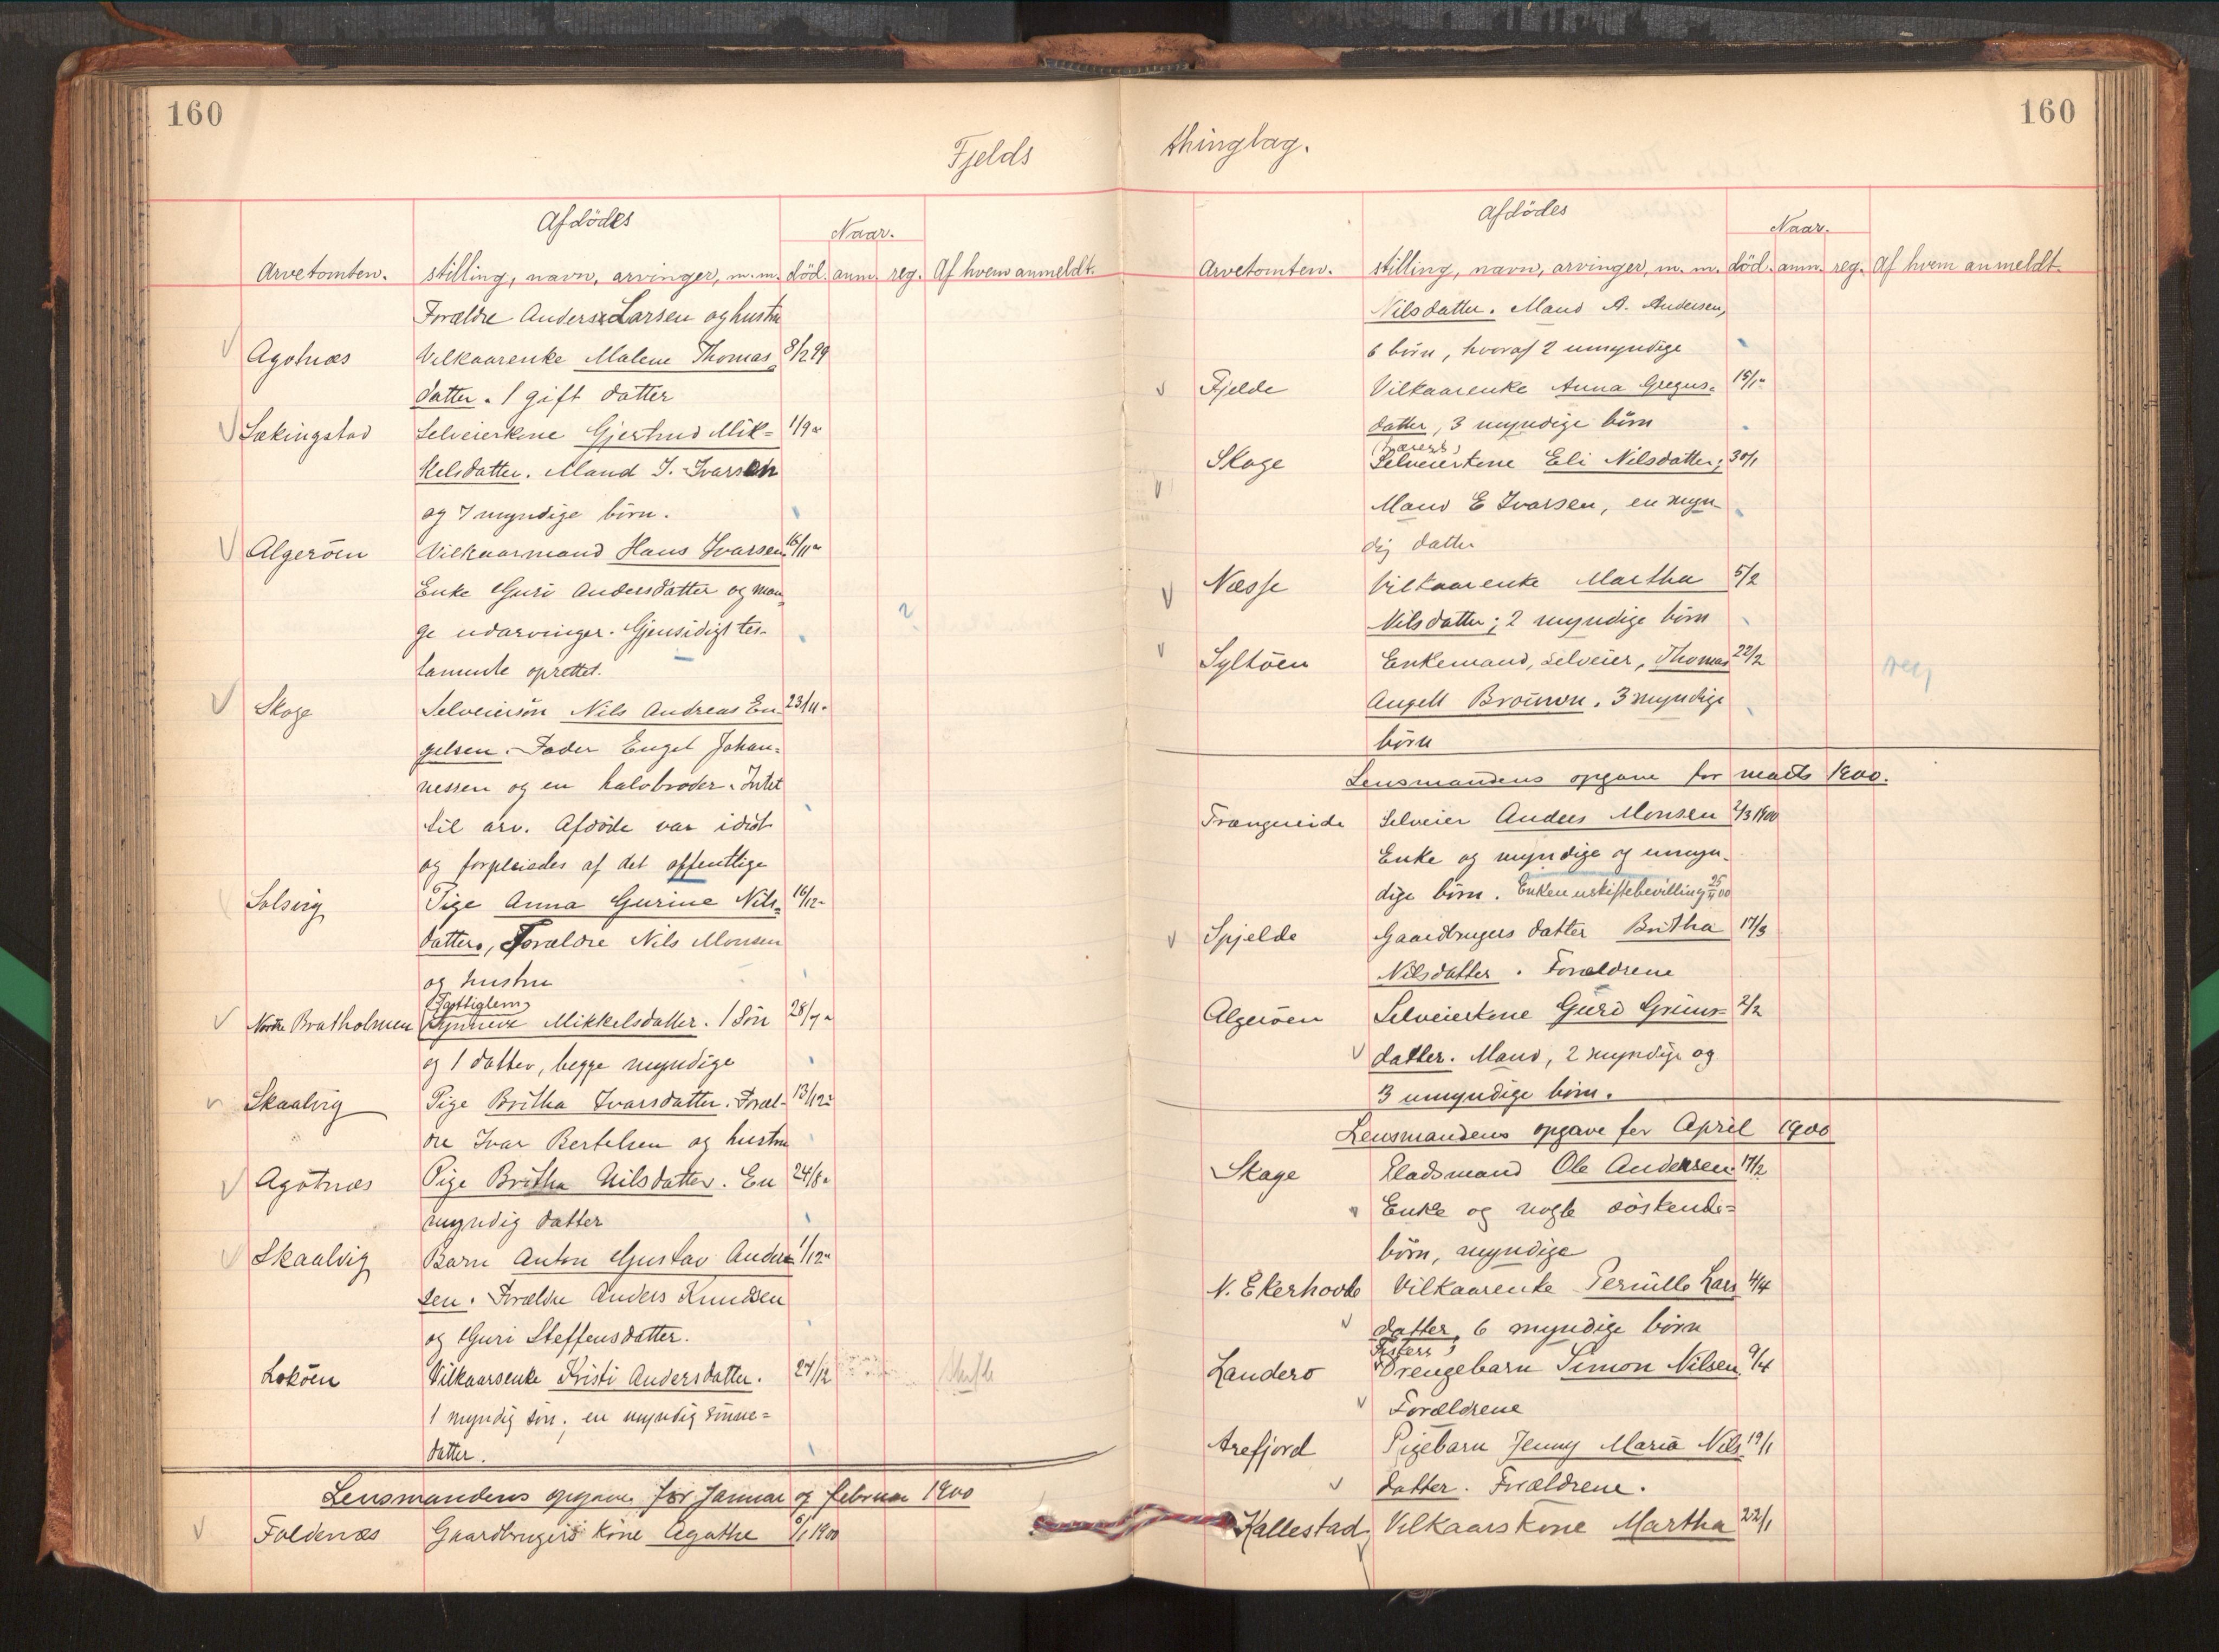 160
Fjelds
Afdödes
Naar.
Arvetomten. stilling, navn, arvinger, m. m. död. anm. reg. Af hvem anmeldt.
Forældre Anders Larsen og hustru
Agotnæs Vilkaarenke Malene Thomas= 8/2 99
datter. 1 gift datter
Lekingstad Selveierkone Gjertrud Mik= 1/9 "
kelsdatter. Mand I. Ivarsen
og 7 myndige börn.
Algeröen Vilkaarmand Hans Ivarsen. 16/11 "
Enke Guri Andersdatter og man=
ge udarvinger. Gjensidigt tes-
tamente oprettet.
?
Skoge Selveiersön Nils Andreas En- 23/11 "
gelsen. Fader Engel Johan=
nessen og en halvbroder. Intet
til arv. Afdöde var idiot
og forpleiades af det offentlige
Solsvig Pige Anna Gurine Nils= 16/12 "
datter, Forældre Nils Monsen
og hustru
Fattiglem,
Nordre Bratholmen Synneve Mikkelsdatter. 1 Sön 28/7 "
og 1 datter, begge myndige
Skaalvig Pige Britha Ivarsdatter. Foræl- 13/12 "
dre Ivar Bertelsen og hustru
Agötnæs Pige Britha Nilsdatter. En 24/8 "
myndig datter
Skaalvig Barn Anton Gustav Ander= 1/12 "
sen. Forældre Anders Knudsen
og Guri Steffensdatter.
Loköen Vilkaarsenke Kristi Andersdatter. 27/12
1 myndig sön; en myndig sönne=
datter.
Lensmandens opgave for Januar og februar 1900
Foldenæs Gaardbrugers kone Agathe 6/1 1900
160
thinglag.
Afdödes
Naar.
Arvetomten. stilling, navn, arvinger, m. m. död. anm. reg. Af hvem anmeldt.
Nilsdatter. Mand A. Andersen,
6 börn, hvoraf 2 umyndige
Fjelde Vilkaarenke Anna Gregus= 15/1 "
datter, 3 myndige börn
Skoge Selveierkone Eli Nilsdatter; 30/1
Mand E Ivarsen, en myn-
dig datter
Næsse Vilkaarenke Martha 5/2
Nilsdatter; 2 myndige börn
Syltöen Enkemand, selveier, Thomas 22/2
reg
Angell Brouwn. 3 myndige
börn
Lensmandens opgave for marts 1900.
Trængereide Selveier Anders Monsen 2/3 1900
Enke og myndige og umyn-
dige börn. Enken uskiftebevilling 25/ 00
Spjelde Gaardbrugers datter Britha 17/3
Nilsdatter. Forældrene
Algeröen Selveierkone Guri Grims= 2/2
datter. Mand, 2 myndige og
3 umyndige börn.
Lensmandens opgave for April 1900
Skage Pladsmand Ole Andersen. 17/2
Enke og nogle söskende=
börn, myndige
N. Ekerhovde Vilkaarenke Pernille Lars 4/4
datter, 6 myndige börn
Fiskers,
Landerö Drengebarn Simon Nilsen. 9/4
Forældrene
Arefjord Pigebarn Jenny Maria Nils 19/1
datter. Forældrene.
Kallestad Vilkaarskone Martha 22/1